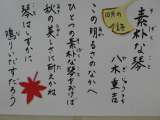 素朴な琴
10月の詩
八木重吉
この明るさのなかへ
ひとつの素朴な琴をおけば
秋の美しさに耐えかね
琴はしずかに
鳴りいだすだろう